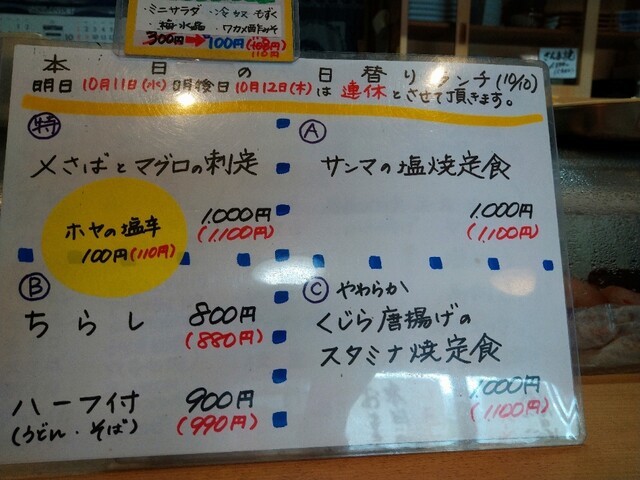 ・ミニサラダ ・冷ヤス もずく
・梅水晶 ・ワカメ酢みそ
300円→100円(110円)
本日の日替りランチ(10/10)
明日10月11日(水)明後日10月12日(木)は連休とさせて頂きます。
特
〆さばとマグロの刺定
1,000円
(1,100円)
ホヤの塩辛
100円(110円)
A
サンマの塩焼定食
1,000円
(1,100円)
B
ちらし 800円
(880円)
ハーフ付 900円
(うどん・そば) (990円)
C
やわらか
くじら唐揚げの
スタミナ焼定食
1,000円
(1,100円)